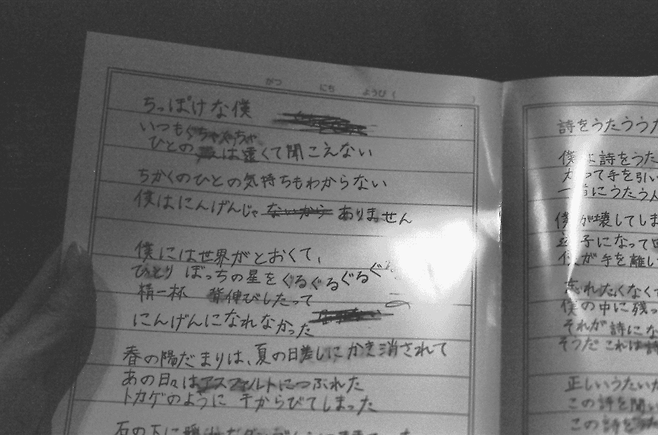 がつ にち ようび (
ちっぽけな僕
いつも
ひとの は遠くて聞こえない
ちかくのひとの気持ちもわからない
僕はにんげんじゃ ないから ありません
僕には世界がとおくて、
ひとりぼっちの星をぐるぐるぐるぐ
精一杯 背伸びしたって
にんげんになれなかった
春の陽だまりは、夏の日差しにかき消されて
あの日々はアスファルトにつぶれた
トカゲのように干からびてしまった
石の下に
詩をうたううた
僕は詩をうた
って手を引い
一緒にうたう人
僕が壊してしま
になって
が手を離し
忘れたくなくて
僕の中に残っ
それが詩にな
そうだこれは詩
正しいうたいか
この詩を聞い
この詩をうた